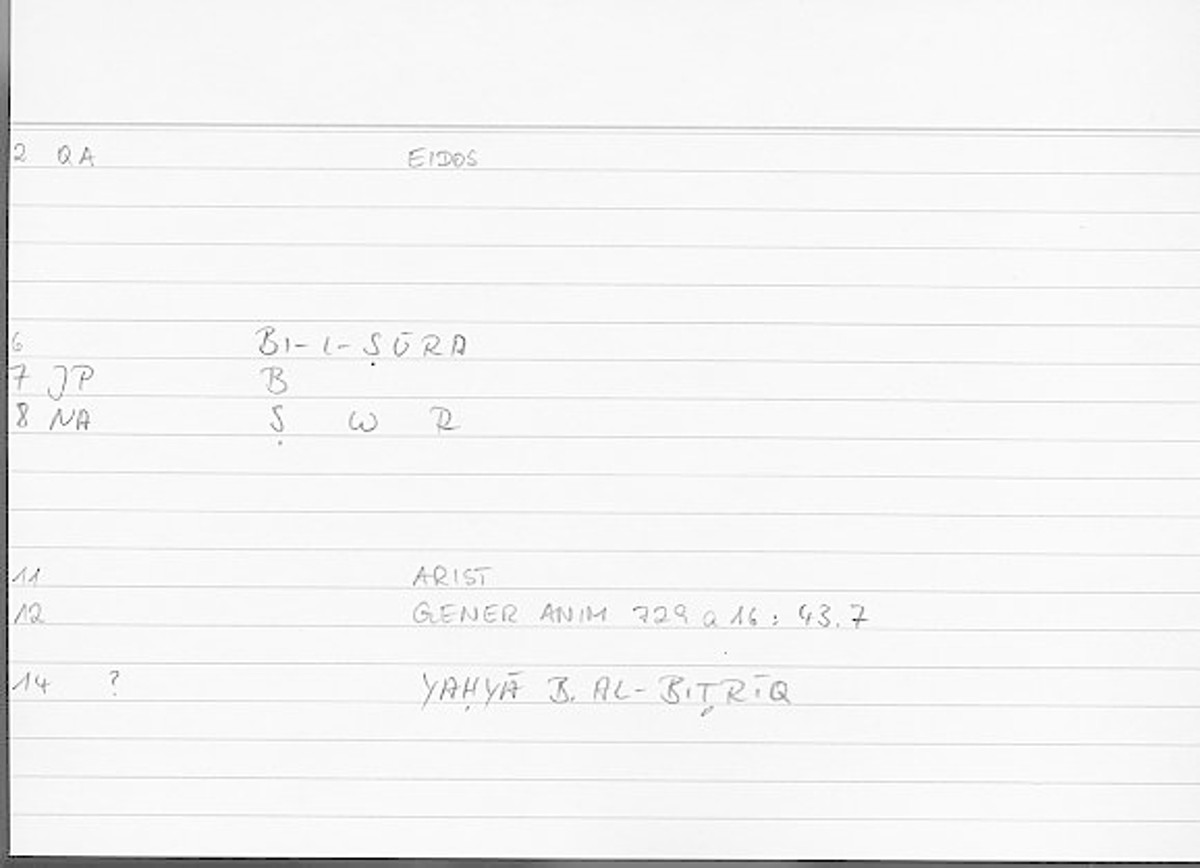 2 QA EIDOS
6 BI-L-ṢŪRA
7 JP B
8 NA Ṣ W R
11 ARIST
12 GENER ANIM 729 a 16 : 43.7
14 ? YAḤYĀ B. AL-BIṬRĪQ